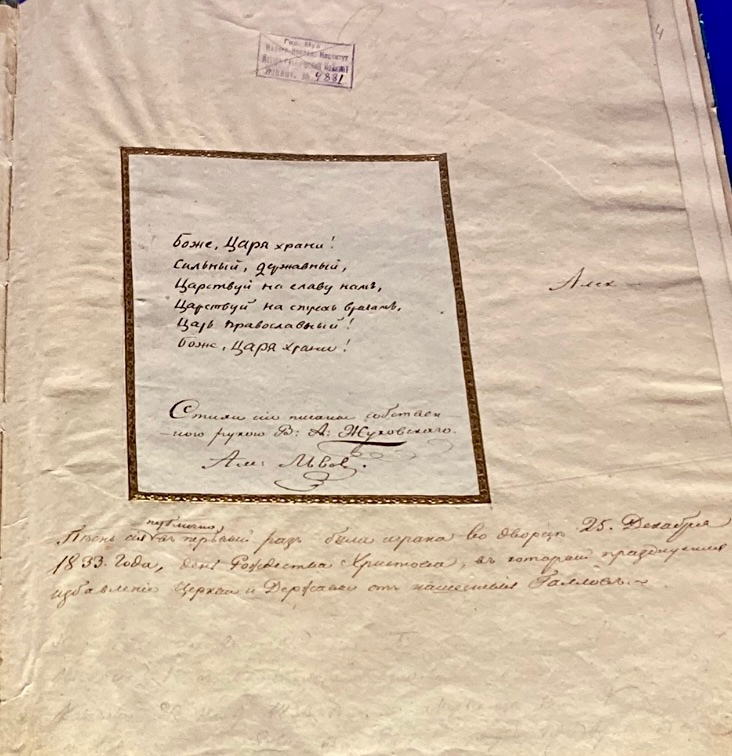 4
Гос. Муз.
Научн. Исслед. Институт
9881
Боже, Царя храни!
Сильный, державный,
Царствуй на славу намъ,
Царствуй на страхъ врагамъ,
Царь православный!
Боже, Царя храни!
Стихи сіи писаны собствен
-ною рукою В: А: Жуковскаго.
Але: Львов.
Алек
публично
Пѣснь сія въ первый разъ была играна во дворцѣ 25. Декабря
1833. Года, день Рождества Христова, въ который празднуется
избавленіе Церкви и Державы отъ нашествія Галловъ.